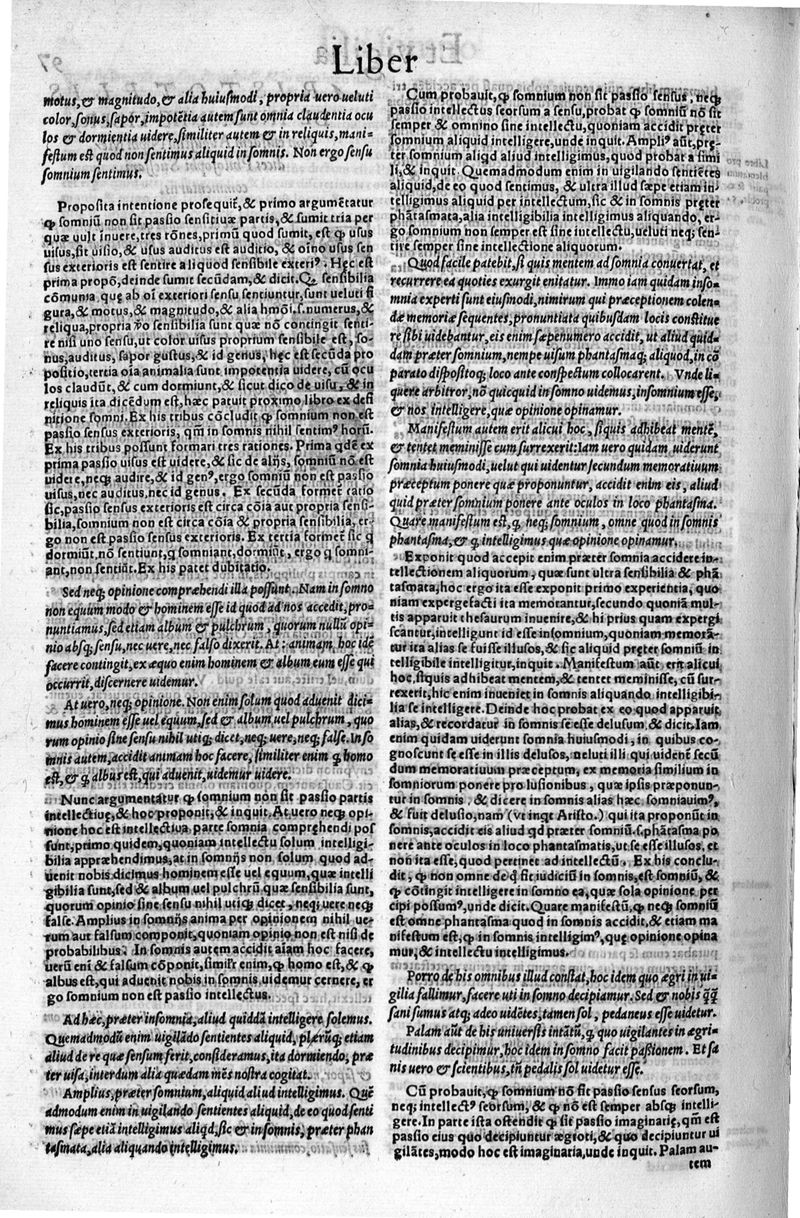 Liber
motus, & magnitudo, & alia huiusmodi, propria uero ueluti
color, sonus, sapor, impotētia autem sunt omnia claudentia ocu
los & dormientia uidere, similiter autem & in reliquis, mani-
festum est quod non sentimus aliquid in somnis. Non ergo sensu
somnium sentimus.
Proposita intentione prosequit̃, & primo argumētatur
ꝙ somniũ non sit passio sensitiuæ partis, & sumit tria per
quæ uult inuere, tres rōnes, primũ quod sumit, est ꝙ usus
uisus, sit uisio, & usus auditus est auditio, & oīno usus sen
sus exterioris est sentire aliquod sensibile exteriꝰ. Hęc est
prima propō, deinde sumit secũdam, & dicit. Qꝫ sensibilia
cōmunia, que ab oī exteriori sensu sentiuntur, sunt ueluti fi
gura, & motus, & magnitudo, & alia hmōi. s. numerus, &
reliqua, propria ꝟo sensibilia sunt quæ nō contingit senti-
re nisi uno sensu, ut color uisus proprium sensibile est, so-
nus, auditus, sapor gustus, & id genus, hęc est secũda pro
positio, tertia oīa animalia sunt impotentia uidere, cũ ocu
los claudũt, & cum dormiunt, & sicut dico de uisu, & in
reliquis ita dicēdum est, hæc patuit proximo libro ex defi
nitione somni. Ex his tribus cōcludit ꝙ somnium non est
passio sensus exterioris, qm̃ in somnis nihil sentimꝰ horũ.
Ex his tribus possunt formari tres rationes. Prima qdē ex
prima passio uisus est uidere, & sic de alijs, somniũ nō est
uidere, neqꝫ audire, & id genꝰ, ergo somniũ non est passio
uisus, nec auditus, nec id genus. Ex secũda formet̃ ratio
sic, passio sensus exterioris est circa cōia aut propria sensi-
bilia, somnium non est circa cōia & propria sensibilia, er-
go non est passio sensus exterioris. Ex tertia formet̃ sic q
dormiũt, nō sentiunt, q somniant, dormiũt, ergo q somni-
ant, non sentiũt. Ex his patet dubitatio.
Sed neqꝫ opinione compræhendi illa possunt. Nam in somno
non equum modo & hominem esse id quod ad nos accedit, pro-
nuntiamus, sed etiam album & pulchrum, quorum nullũ opi-
nio absqꝫ sensu, nec uere, nec falso dixerit. At: animam hoc idē
facere contingit, ex æquo enim hominem & album eum esse qui
occurrit, discernere uidemur.
At uero, neqꝫ opinione. Non enim solum quod aduenit dici-
mus hominem esse uel equum, sed & album uel pulchrum, quo
rum opinio sine sensu nihil utiqꝫ dicet, neqꝫ uere, neqꝫ false. In so
mnis autem, accidit animam hoc facere, similiter enim q̃ homo
est, & q̃ albus est, qui aduenit, uidemur uidere.
Nunc argumentatur ꝙ somnium non sit passio partis
intellectiuę, & hoc proponit, & inquit. At uero neqꝫ opi-
nione hoc est intellectiua parte somnia comprehendi pos
sunt, primo quidem, quoniam intellectu solum intelligi-
bilia appræhendimus, at in somnijs non solum quod ad-
uenit nobis dicimus hominem esse uel equum, quæ intelli
gibilia sunt, sed & album uel pulchrũ quæ sensibilia sunt,
quorum opinio sine sensu nihil utiqꝫ dicet, neqꝫ uere neqꝫ
false. Amplius in somnijs anima per opinionem nihil ue-
rum aut falsum componit, quoniam opinio non est nisi de
probabilibus. In somnis autem accidit aīam hoc facere,
uerũ enī & falsum cōponit, simĩr enim, ꝙ homo est, & ꝙ
albus est, qui aduenit nobis in somnis uidemur cernere, er-
go somnium non est passio intellectus.
Ad hæc, præter insomnia, aliud quiddā intelligere solemus.
Quemadmodũ enim uigilādo sentientes aliquid, plærũqꝫ etiam
aliud de re quæ sensum ferit, consideramus, ita dormiendo, præ
ter uisa, interdum alia quædam mēs nostra cogitat.
Amplius, præter somnium, aliquid aliud intelligimus. Quē
admodum enim in uigilando sentientes aliquid, de eo quod senti
mus sæpe etiā intelligimus aliqd, sic & in somnis, præter phan
tasmata, alia aliquando intelligimus.
Cum probauit, ꝙ somnium non sit passio sensus, neqꝫ
passio intellectus seorsum a sensu, probat ꝙ somniũ nō sit
semper & omnino sine intellectu, quoniam accidit pręter
somnium aliquid intelligere, unde inquit. Ampliꝰ aũt, prę-
ter somnium aliqd aliud intelligimus, quod probat a simi
li, & inquit. Quemadmodum enim in uigilando sentiētes
aliquid, de eo quod sentimus, & ultra illud sæpe etiam in-
telligimus aliquid per intellectum, sic & in somnis pręter
phātasmata, alia intelligibilia intelligimus aliquando, er-
go somnium non semper est sine intellectu, ueluti neqꝫ sen-
tire semper sine intellectione aliquorum.
Quod facile patebit, si quis mentem ad somnia conuertat, et
recurrere ea quoties exurgit enitatur. Immo iam quidam inso-
mnia experti sunt eiusmodi, nimirum qui præceptionem colen-
dæ memoriæ sequentes, pronuntiata quibusdam locis constitue
re sibi uidebantur, eis enim sæpenumero accidit, ut aliud quid-
dam præter somnium, nempe uisum phantasmaqꝫ aliquod, in cō
parato dispositoqꝫ loco ante conspectum collocarent. Vnde li-
quere arbitror, nō quicquid in somno uidemus, insomnium esse,
& nos intelligere, quæ opinione opinamur.
Manifestum autem erit alicui hoc, siquis adhibeat mentē,
& tentet meminisse cum surrexerit: Iam uero quidam, uiderunt
somnia huiusmodi, uelut qui uidentur secundum memoratiuum
præceptum ponere quæ proponuntur, accidit enim eis, aliud
quid præter somnium ponere ante oculos in loco phantasma.
Quare manifestum est, q̃ neqꝫ somnium, omne quod in somnis
phantasma, & q̃ intelligimus quæ opinione opinamur.
Exponit quod accepit enim præter somnia accidere in-
tellectionem aliquorum, quæ sunt ultra sensibilia & phā
tasmata, hoc ergo ita esse exponit primo experientia, quo
niam expergefacti ita memorantur, secundo quoniā mul-
tis apparuit thesaurum inuenire, & hi prius quam expergi
scantur, intelligunt id esse insomnium, quoniam memorā-
tur ita alias se fuisse illusos, & sic aliquid pręter somniũ in
telligibile intelligitur, inquit. Manifestum aũt erit alicui
hoc, siquis adhibeat mentem, & tentet meminisse, cũ sur-
rexerit, hic enim inueniet in somnis aliquando intelligibi-
lia se intelligere. Deinde hoc probat ex eo quod apparuit
alias, & recordatur in somnis sē esse delusum, & dicit. Iam
enim quidam uiderunt somnia huiusmodi, in quibus co-
gnoscunt se esse in illis delusos, ueluti illi qui uident̃ secũ
dum memoratiuum præceptum, ex memoria similium in
somniorum ponere pro lusionibus, quæ ipsis præponun-
tur in somnis, & dicere in somnis alias hæc somniauimꝰ,
& fuit delusio, nam (vt inqt Aristo.) qui ita proponũt in
somnis, accidit eis aliud qd præter somniũ. s. phātasma po
nere ante oculos in loco phantasmatis, ut se esse illusos, et
non ita esse, quod pertinet ad intellectũ. Ex his conclu-
dit, ꝙ non omne de q̊ fit iudiciũ in somnis, est somniũ, &
ꝙ cōtingit intelligere in somno ea, quæ sola opinione per
cipi possumꝰ, unde dicit. Quare manifestũ, ꝙ neqꝫ somniũ
est omne phantasma quod in somnis accidit, & etiam ma
nifestum est, ꝙ in somnis intelligimꝰ, quę opinione opina
mur, & intellectu intelligimus.
Porro de his omnibus illud constat, hoc idem quo ægri in ui-
gilia fallimur, facere uti in somno decipiamur. Sed & nobis q̃q̃
sani sumus atqꝫ adeo uidētes, tamen sol, pedaneus esse uidetur.
Palam aũt de his uniuersis intātũ, q̃ quo uigilantes in ægri-
tudinibus decipimur, hoc idem in somno facit passionem. Et sa
nis uero & scientibus, tñ pedalis sol uidetur esse.
Cũ probauit, ꝙ somnium nō sit passio sensus seorsum,
neqꝫ intellectꝰ seorsum, & ꝙ nō est semper absqꝫ intelli-
gere. In parte ista ostendit ꝙ sit passio imaginatię, qm̃ est
passio eius quo decipiuntur ægroti, & quo decipiuntur ui
gilātes, modo hoc est imaginatia, unde inquit. Palam au-
tem